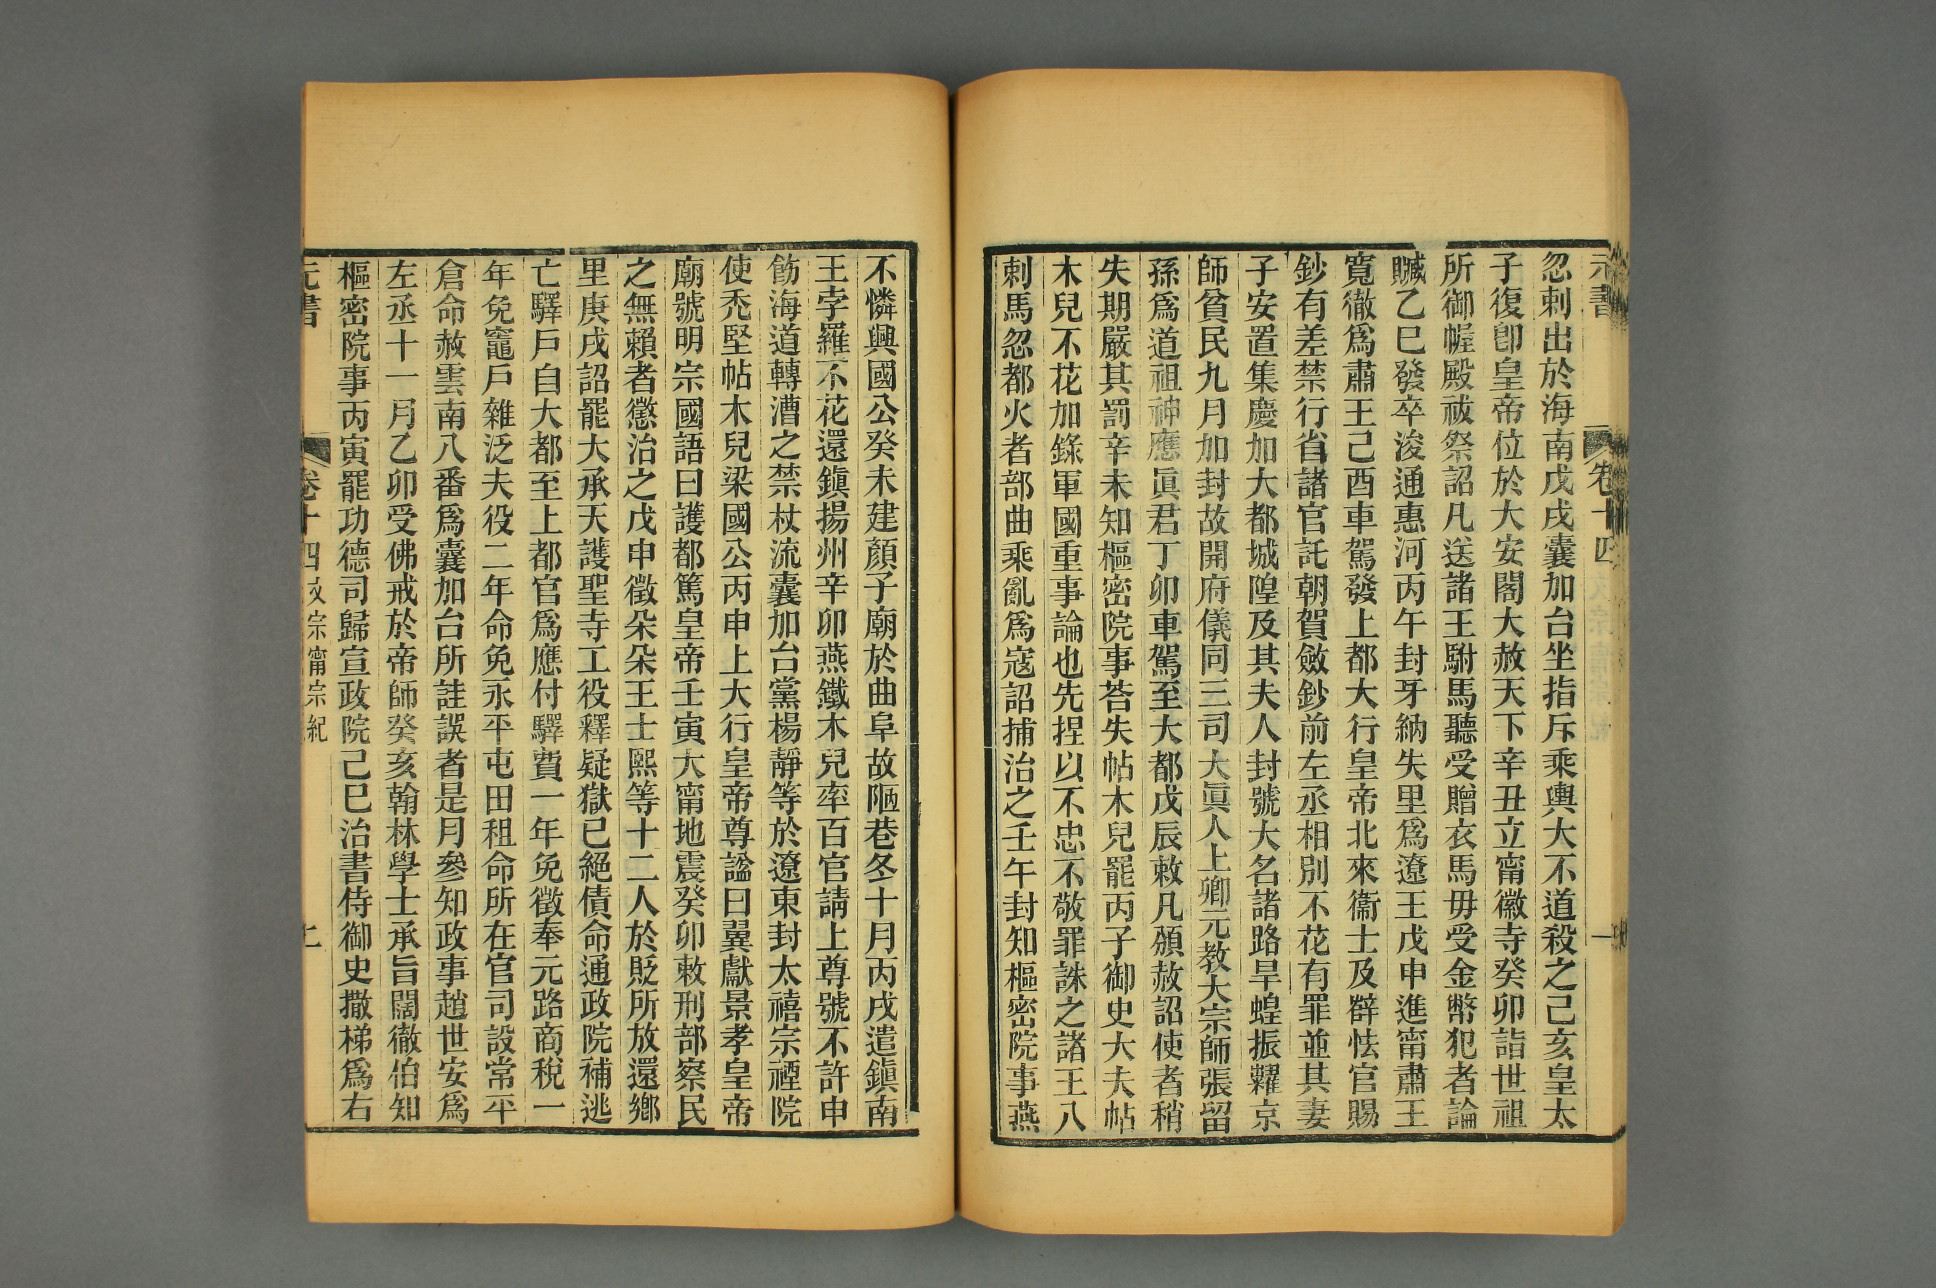 元書
卷十四
忽剌出於海南戊戌囊加台坐指斥乘輿大不道殺之己亥皇太
子復卽皇帝位於大安閣大赦天下辛丑立甯徽寺癸卯詣世祖
所御幄殿祓祭詔凡送諸王駙馬聽受贈衣馬毋受金幣犯者論
贓乙巳發卒浚通惠河丙午封牙納失里爲遼王戊申進甯肅王
寬徹爲肅王己酉車駕發上都大行皇帝北來衞士及羣怯官賜
鈔有差禁行省諸官託朝賀斂鈔前左丞相別不花有罪並其妻
子安置集慶加大都城隍及其夫人封號大名諸路旱蝗振糶京
師貧民九月加封故開府儀同三司大眞人上卿元教大宗師張留
孫爲道祖神應眞君丁卯車駕至大都戊辰敕凡頒赦詔使者稍
失期嚴其罰辛未知樞密院事荅失帖木兒罷丙子御史大夫帖
木兒不花加錄軍國重事論也先捏以不忠不敬罪誅之諸王八
剌馬忽都火者部曲乘亂爲寇詔捕治之壬午封知樞密院事燕
不憐興國公癸未建顏子廟於曲阜故陋巷冬十月丙戌遣鎭南
王孛羅不花還鎭揚州辛卯燕鐵木兒率百官請上尊號不許申
飭海道轉漕之禁杖流囊加台黨楊靜等於遼東封太禧宗禋院
使禿堅帖木兒梁國公丙申上大行皇帝尊謚曰翼獻景孝皇帝
廟號明宗國語曰護都篤皇帝壬寅大甯地震癸卯敕刑部察民
之無賴者懲治之戊申徵朵朵王士熙等十二人於貶所放還鄉
里庚戌詔罷大承天護聖寺工役釋疑獄已絕債命通政院補逃
亡驛戶自大都至上都官爲應付驛費一年免徵奉元路商稅一
年免竈戶雜泛夫役二年命免永平屯田租命所在官司設常平
倉命赦雲南八番爲囊加台所詿誤者是月參知政事趙世安爲
左丞十一月乙卯受佛戒於帝師癸亥翰林學士承旨闊徹伯知
樞密院事丙寅罷功德司歸宣政院己巳治書侍御史撒梯爲右
元書
卷十四文宗甯宗紀